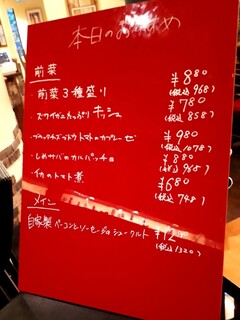 本日のおすすめ
前菜
・前菜3種盛り ¥880
(税込968)
・ズワイガニたっぷりキッシュ ¥780
(税込858)
トマトのカプレーゼ ¥980
(税込1078)
・しめサバのカルパッチョ ¥880
(税込965)
・イカのトマト煮 ¥680
(税込748)
メイン
自家製ベーコンとソーセージのシュークルト ¥12
(税込1320)